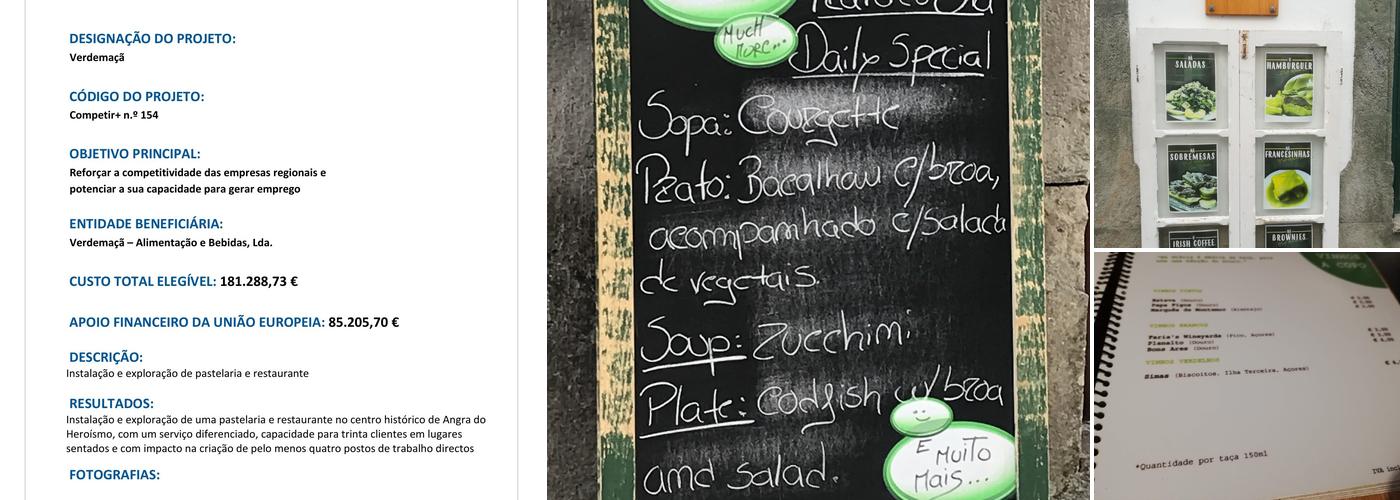 DESIGNAÇÃO DO PROJETO:
Verdemaçã
CÓDIGO DO PROJETO:
Competir+ n.º 154
OBJETIVO PRINCIPAL:
Reforçar a competitividade das empresas regionais e
potenciar a sua capacidade para gerar emprego
ENTIDADE BENEFICIÁRIA:
Verdemaçã – Alimentação e Bebidas, Lda.
CUSTO TOTAL ELEGÍVEL: 181.288,73 €
APOIO FINANCEIRO DA UNIÃO EUROPEIA: 85.205,70 €
DESCRIÇÃO:
Instalação e exploração de pastelaria e restaurante
RESULTADOS:
Instalação e exploração de uma pastelaria e restaurante no centro histórico de Angra do
Heroísmo, com um serviço diferenciado, capacidade para trinta clientes em lugares
sentados e com impacto na criação de pelo menos quatro postos de trabalho directos
FOTOGRAFIAS:
MUCH
MORE...
Daily Special
Sopa: Courgette
Prato: Bacalhau c/broa,
acompanhado c/salada
de vegetais.
Soup: Zucchini
Plate: Codfish w/broa
and salad.
E MUITO
MAIS...
SALADAS
HAMBÚRGUER
SOBREMESAS
FRANCESINHAS
IRISH COFFEE
BROWNIES
VINHOS
A COPO
VINHOS TINTOS
Papa Figos (Douro)
Marquês de Montemor (Alentejo)
VINHOS BRANCOS
Faria's Wineyards (Pico, Açores)
Planalto (Douro)
Bons Ares (Douro)
VINHOS VERDELHOS
Simas (Biscoitos, Ilha Terceira, Açores)
*Quantidade por taça 150ml